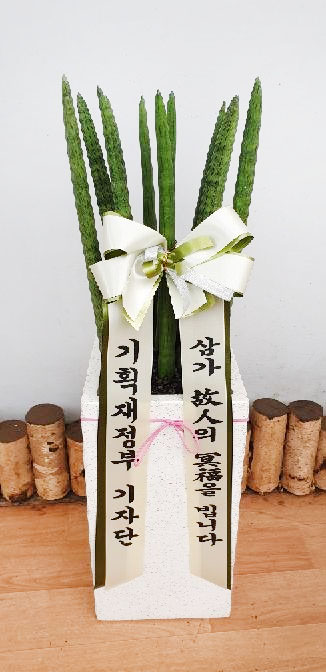 기획재정부 기자단
삼가 故人의 冥福을 빕니다